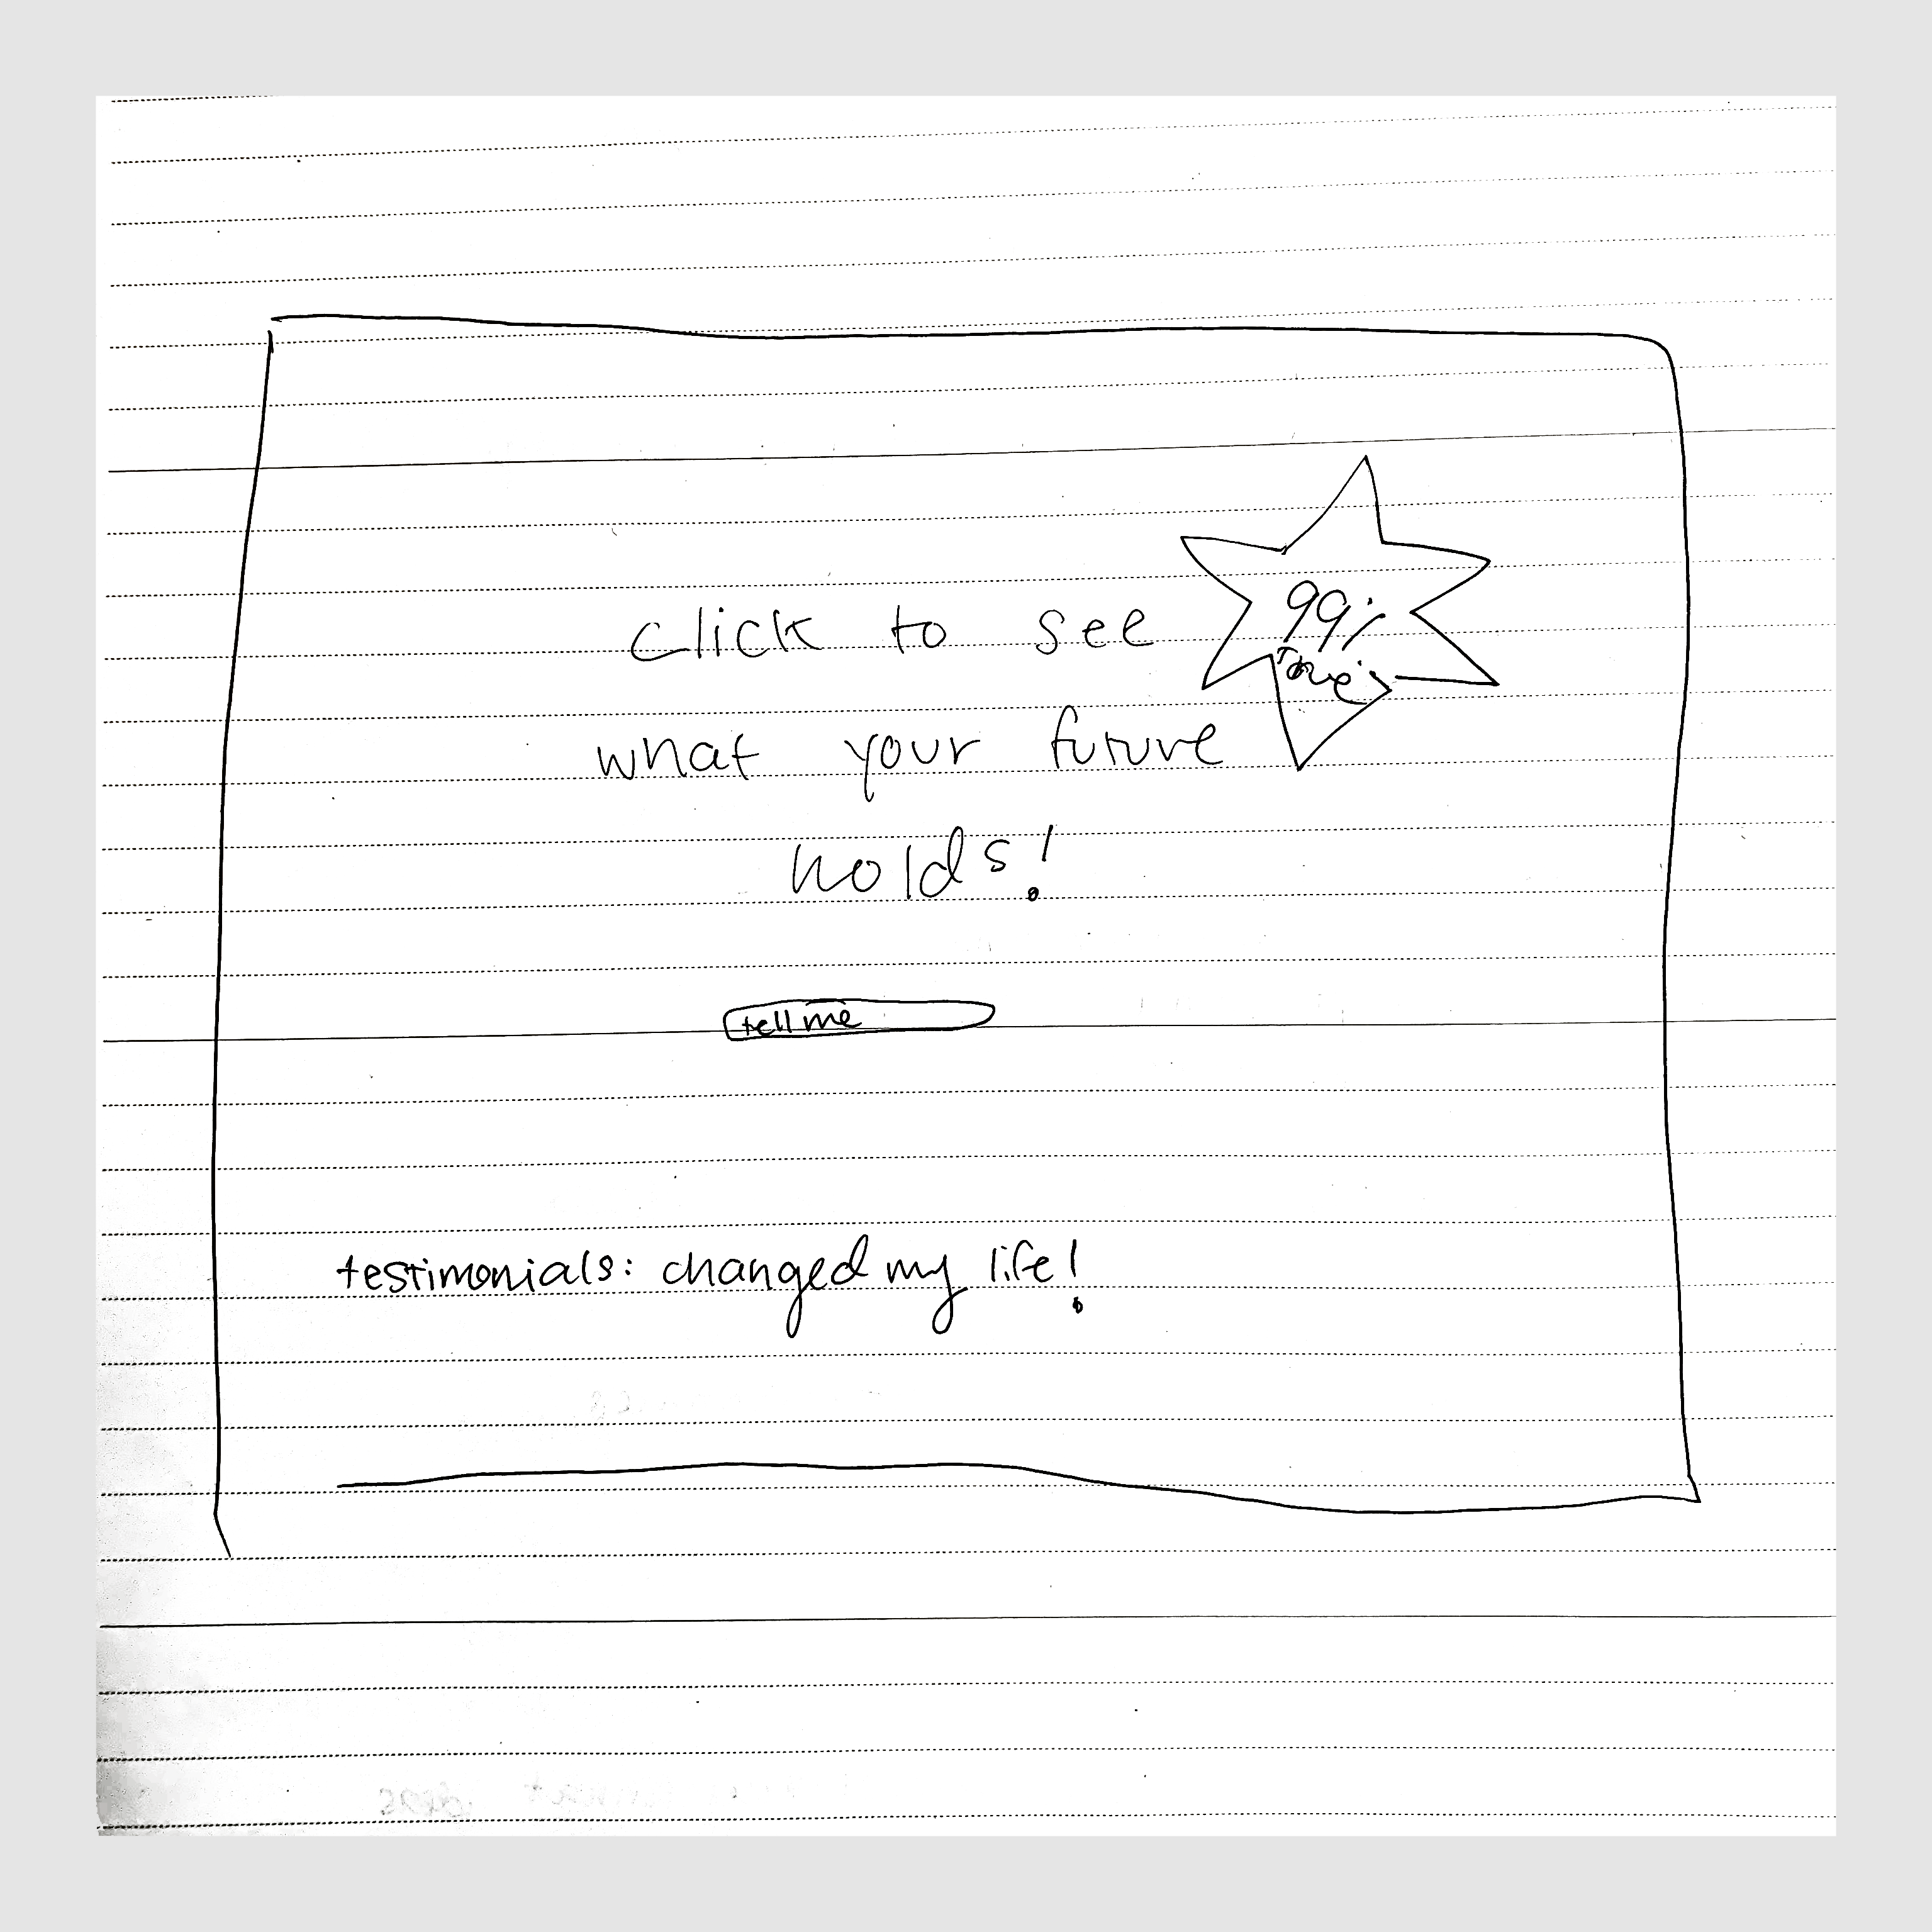 click to see
99%
True
what your future
holds!
tell me
testimonials: changed my life!